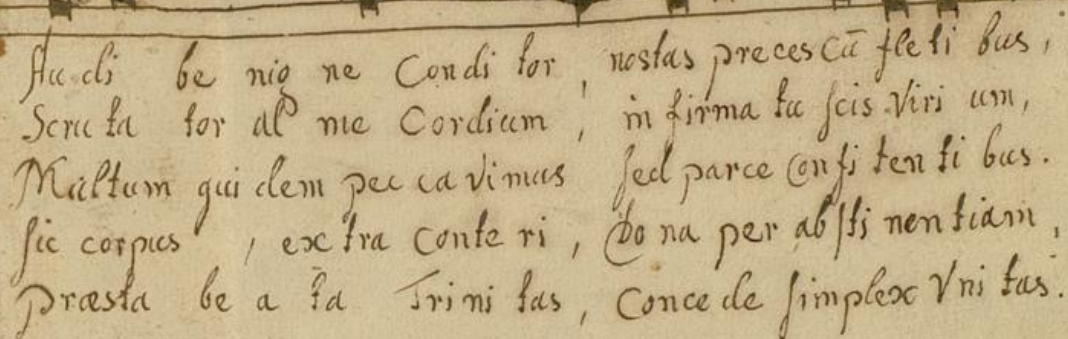 Au di be nig ne Condi tor, nostas preces Cũ fleti bus,
Scru ta tor al me Cordium, in firma tu scis Viri um,
Multum qui dem pec ca vimus sed parce Confi ten ti bus.
sic corpus, extra conte ri, Do na per absti nentiam,
Præsta be a ta Trini tas, Concede simplex Vni tas.